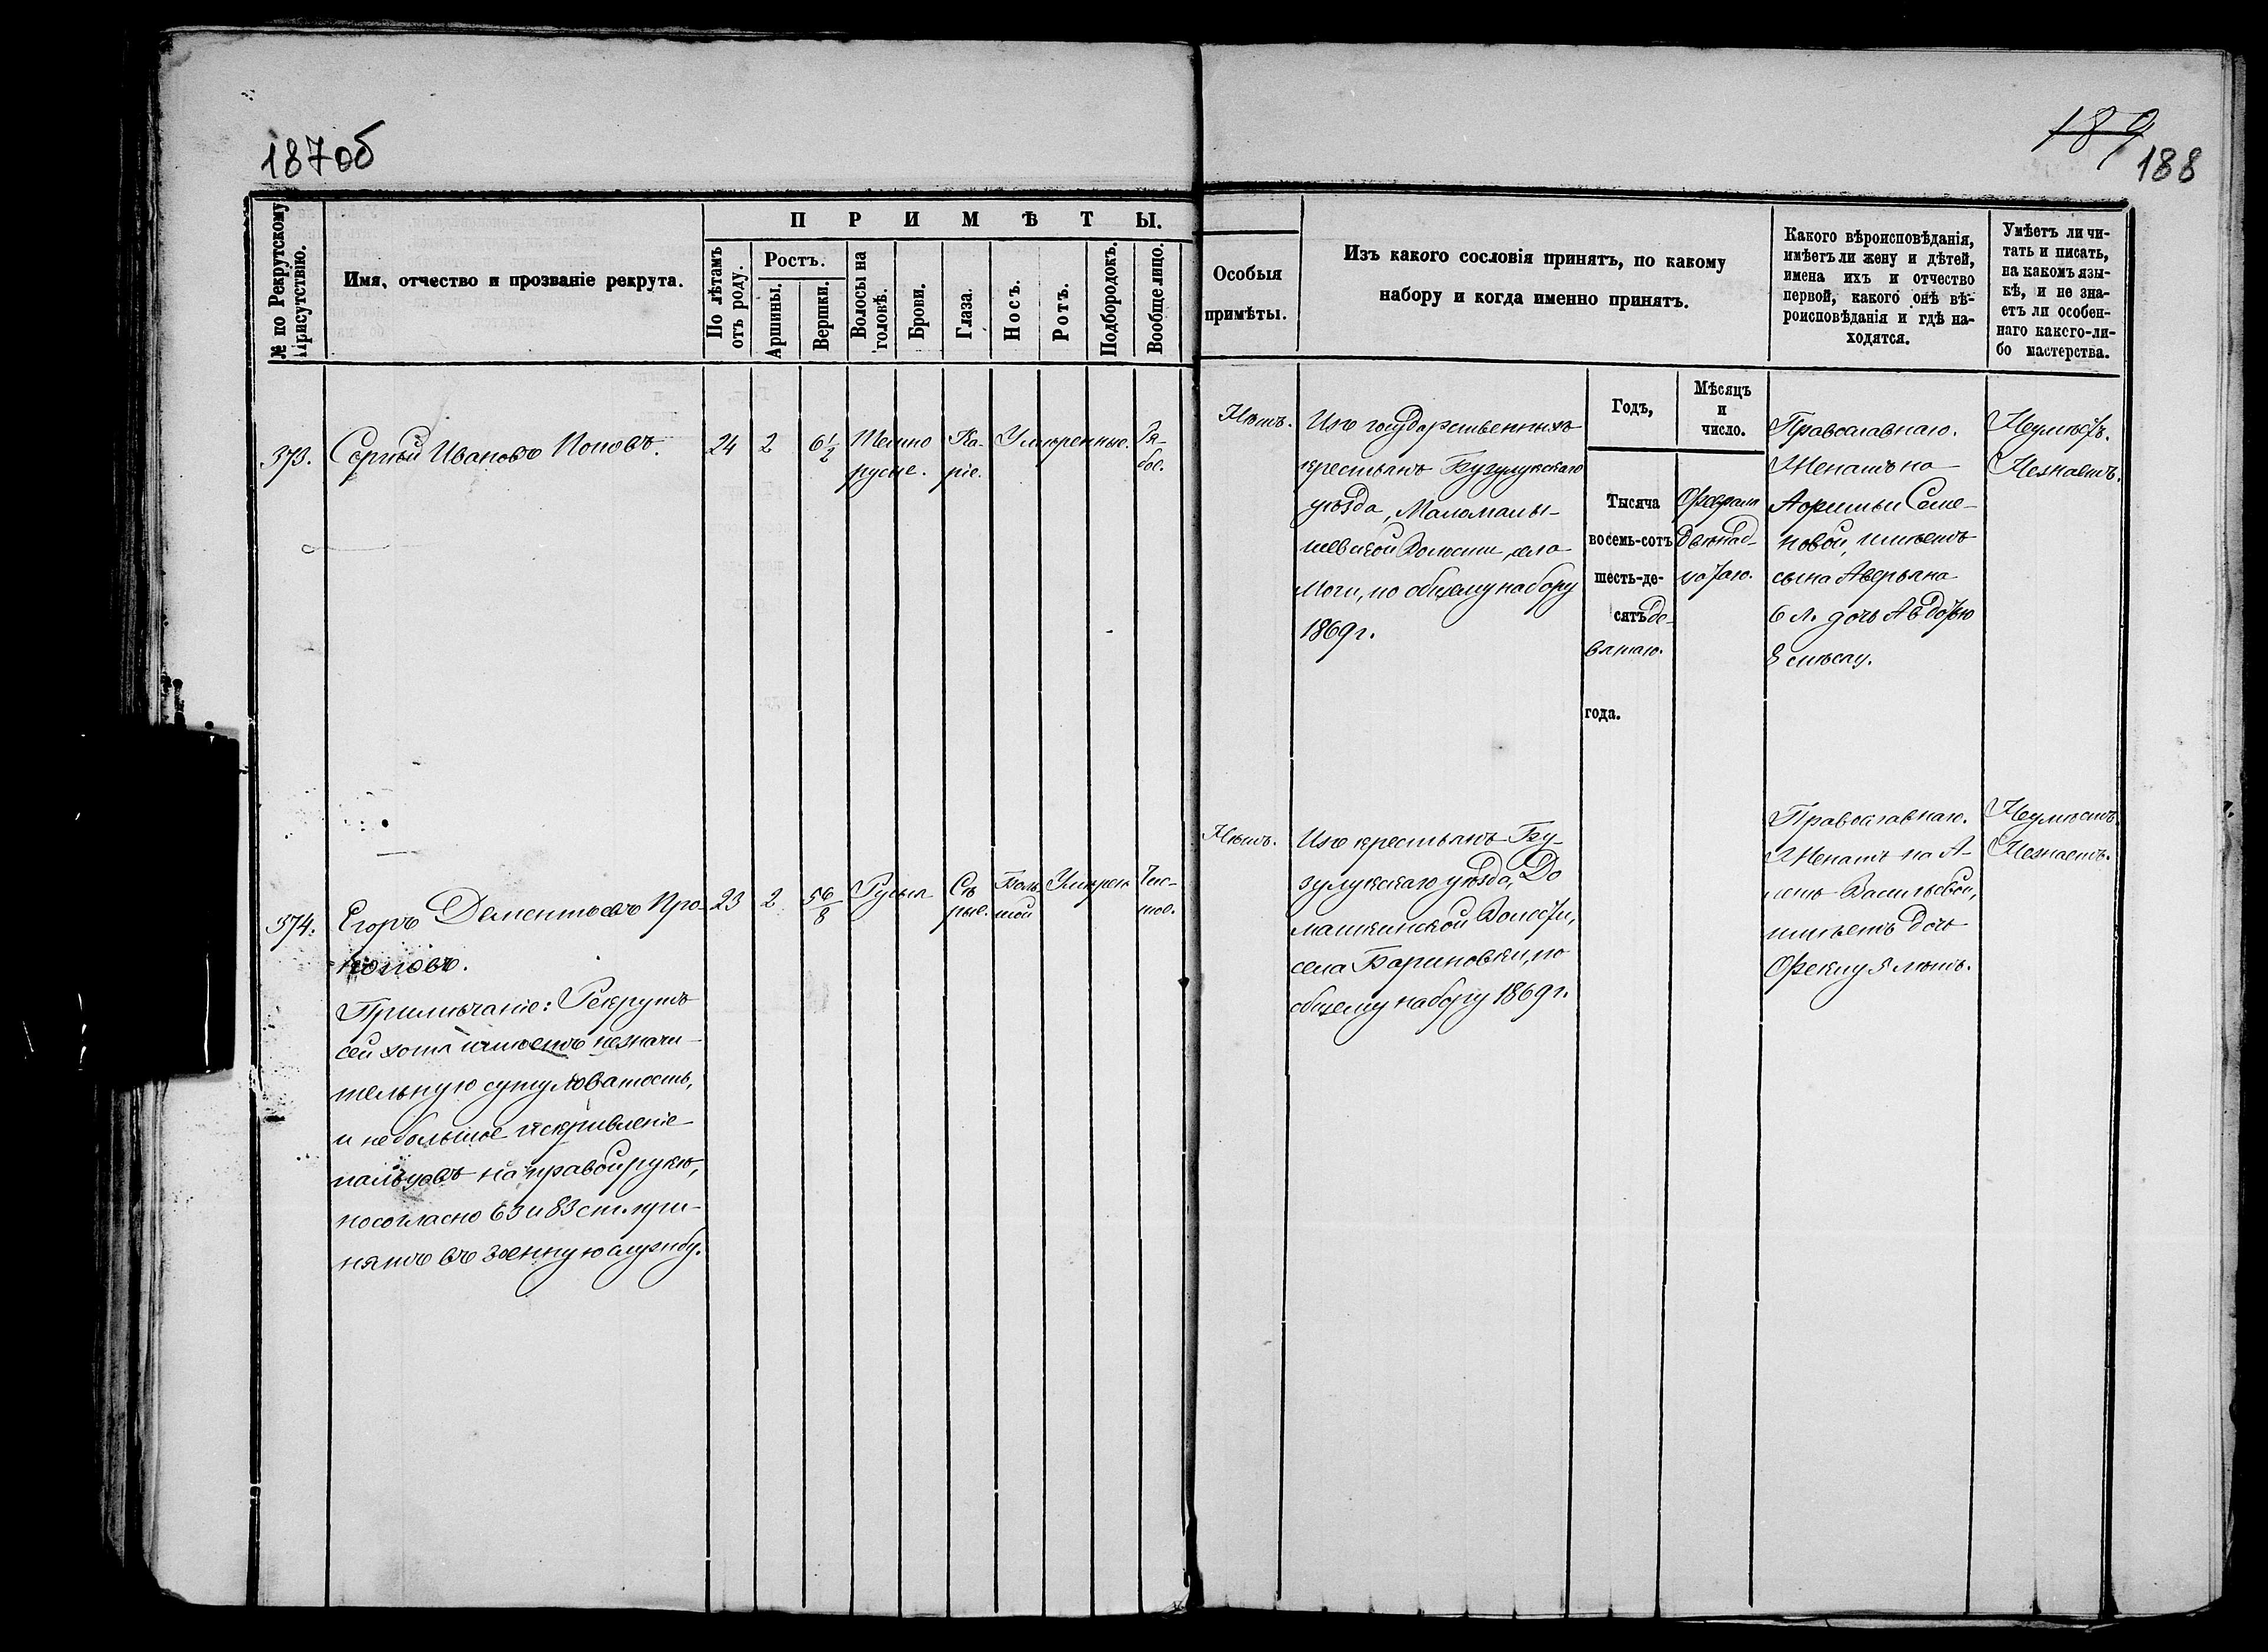 187 об
189
188
№ по Рекрутскому Присутствію.
Имя, отчество и прозваніе рекрута.
ПРИМѢТЫ.
По лѣтамъ отъ роду.
Ростъ.
Аршины.
Вершки.
Волосы на головѣ.
Брови.
Глаза.
Носъ.
Ротъ.
Подбородокъ.
Вообще лицо.
Особыя
примѣты.
Изъ какого сословія принятъ, по какому
набору и когда именно принятъ.
Какого вѣроисповѣданія,
имѣетъ ли жену и дѣтей,
имена ихъ и отчество
первой, какого онѣ вѣ-
роисповѣданія и гдѣ на-
ходятся.
Умѣетъ ли чи-
тать и писать,
на какомъ язы-
кѣ, и не зна-
етъ ли особен-
наго какого-ли-
бо мастерства.
Годъ,
Мѣсяцъ
и
число.
373.
Сергѣй Ивановъ Поповъ.
24
2
6 1/2
Темно
русые.
Ка-
ріе.
Умѣренные.
Ря-
бое.
Нѣтъ.
Изъ государственныхъ
крестьянъ Бузулукскаго
уѣзда, Маломалы-
шевской Волости, села
Моги, по общему набору
1869 г.
Тысяча
восемь-сотъ
шесть-де-
сятъ де-
вятаго.
года.
Февраля
двѣнад-
цатаго.
Православнаго.
Женатъ на
Ариньи Семе-
новой, имѣетъ
сына Аверьяна
6 л. дочь Авдотью
8 мѣсяц.
Неумѣетъ.
Незнаетъ.
374.
Егоръ Дементьевъ Про-
коповъ.
Примѣчаніе: Рекрутъ
сей хотя имѣетъ незначи-
тельную сутуловатость,
и небольшое искривленіе
пальцевъ на правой рукѣ,
но согласно 63 и 83 ст. при-
нятъ въ военную службу.
23
2
5 6/8
Русыя
Сѣ
рые.
Боль
шой
Умѣрен
Чис-
тое.
Нѣтъ.
Изъ крестьянъ Бу-
зулукскаго уѣзда, До
машкинской Волости,
села Бариновки, по
общему набору 1869 г.
Православнаго.
Женатъ на А-
Васильевой,
имѣетъ дочь
Феклу 5 лѣтъ.
Неумѣетъ.
Незнаетъ.